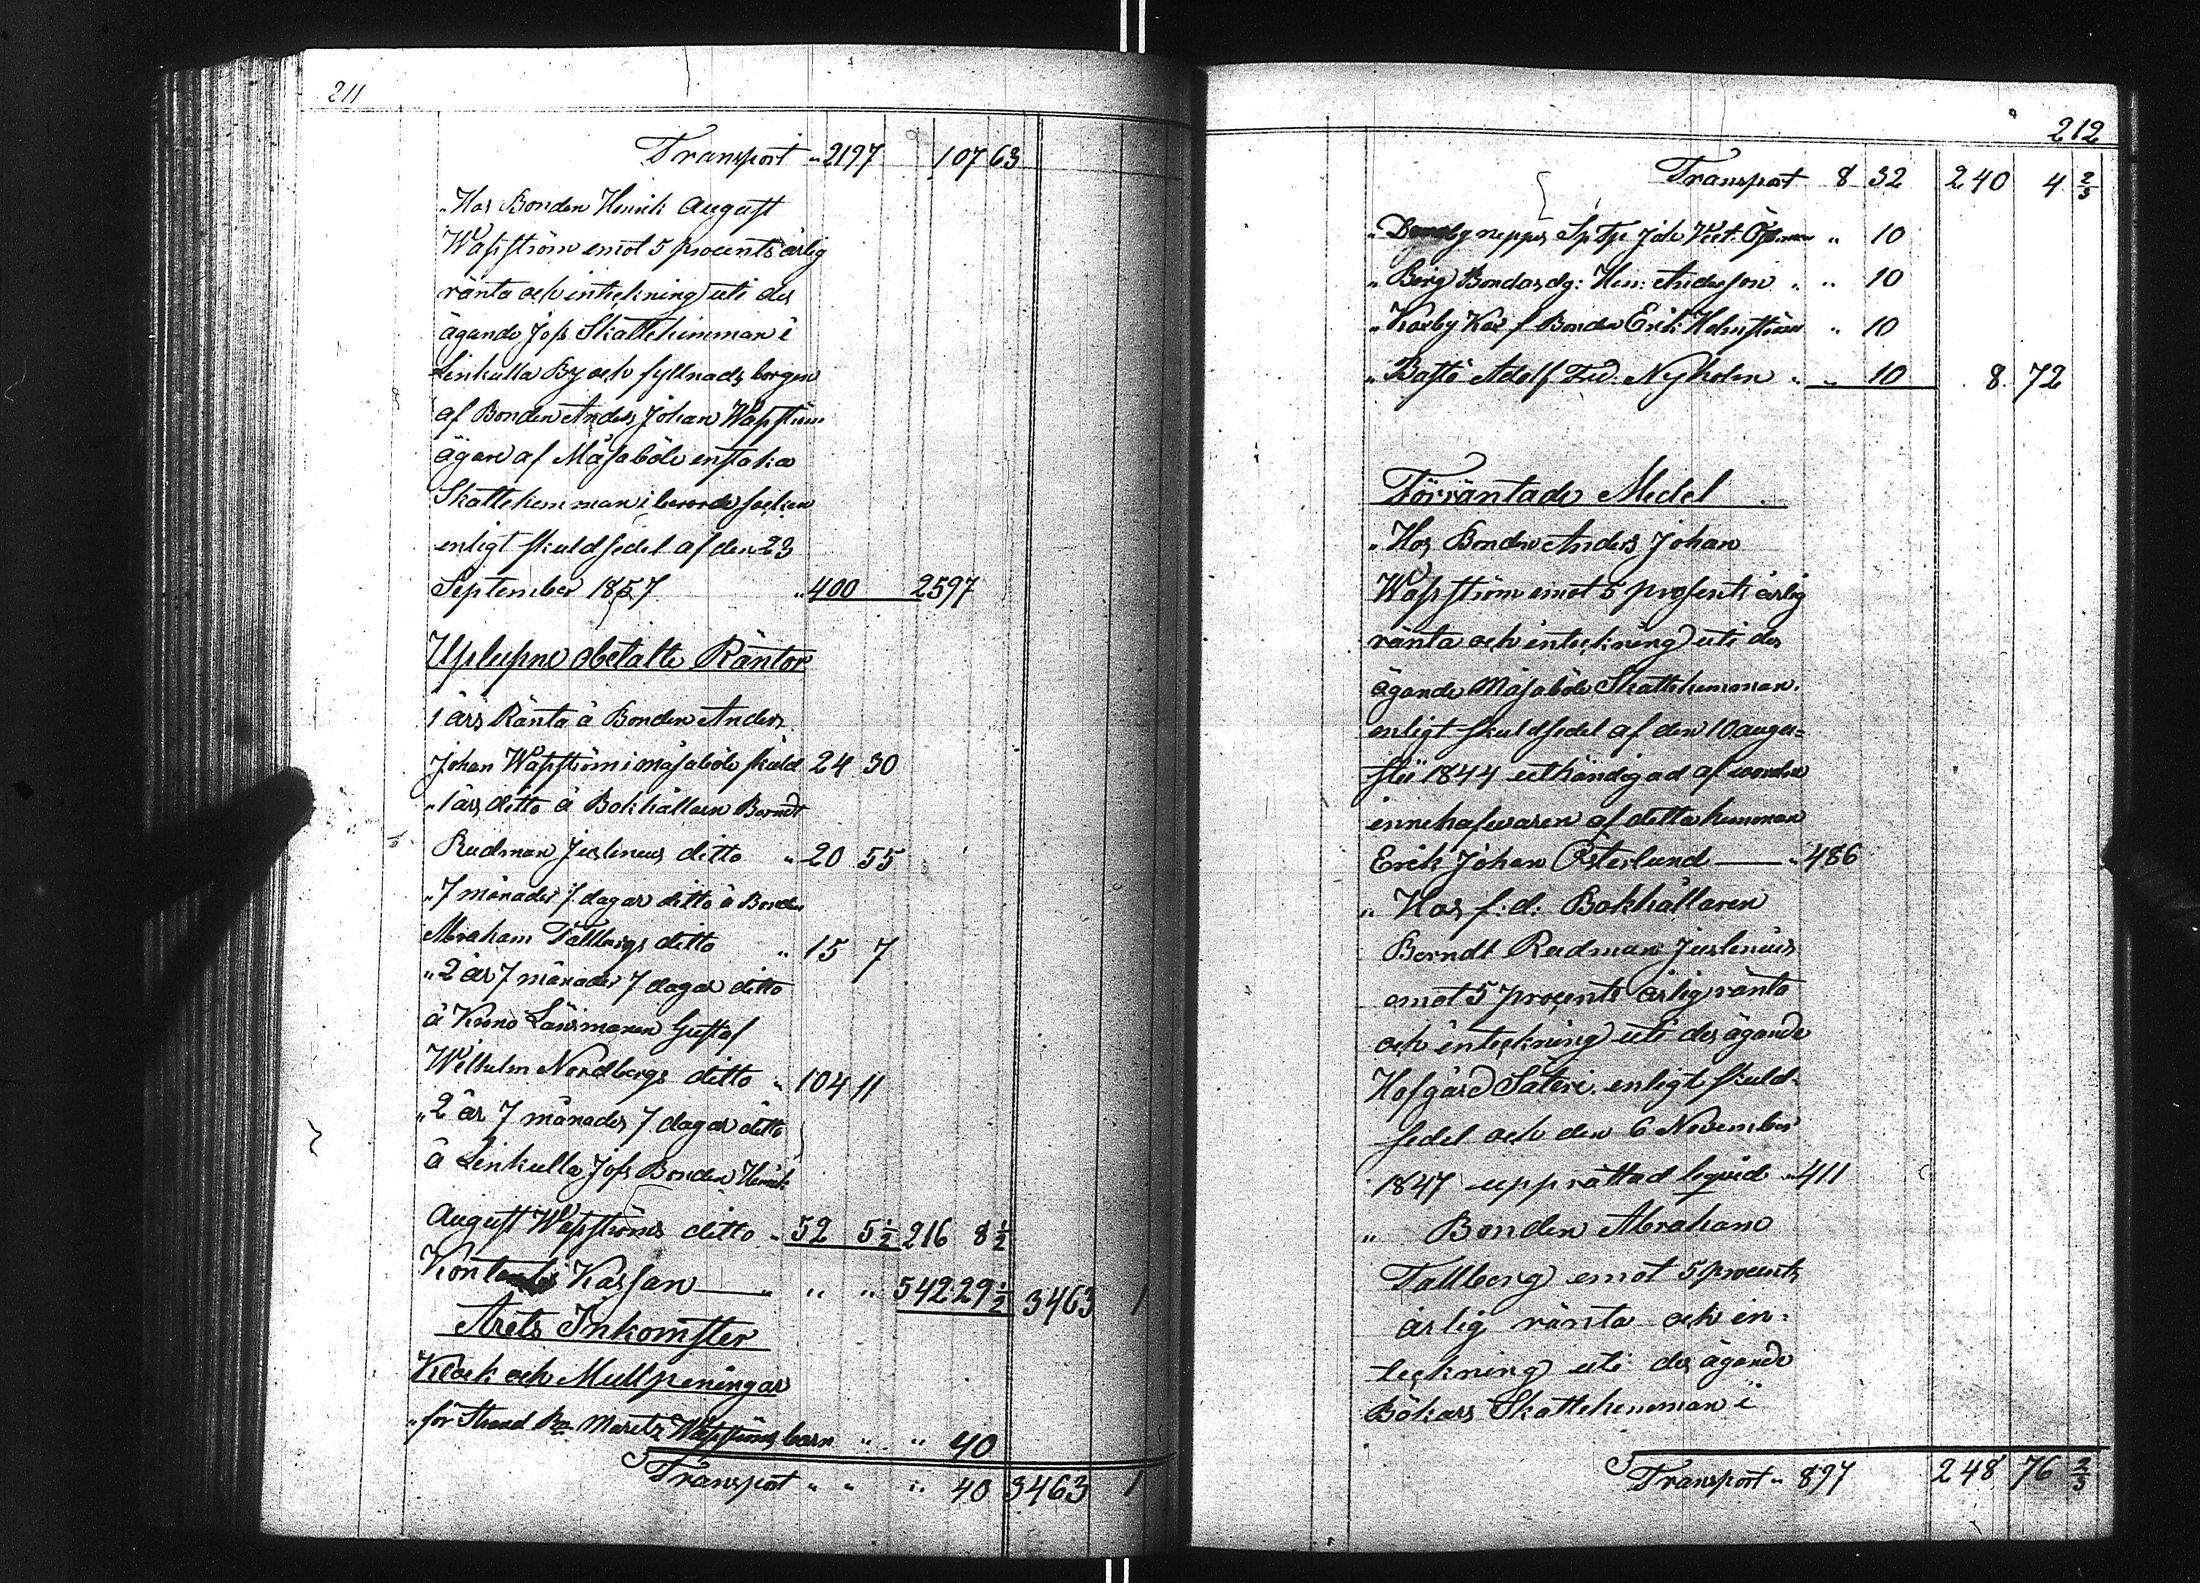 211
Transport " 2197 107 63
" Hos Bonden Henrik August
Wassström emot 5 procents årlig
ränta och inteckning uti des
ägande Joss Skattehemman i
Linkulla By och fyllnads borgen
af Bonden Anders Johan Wassström
ägare af Måsaböle enstaka
Skattehemman i berörde socken
enligt skuldsedel af den 23
September 1857 " 400 2597
Uplupne obetalte Räntor
1 års Ränta å Bonden Anders
Johan Wassström i Måsaböle skuld 24 30
" 1 års ditto å Bokhållaren Berndt
Rudman Juslenius ditto " 20 55
" 7 månader 7 dagar ditto å Bonden
Abraham Tallbergs ditto " 15 7
" 2 år 7 månader 7 dagar ditto
å Krono Länsmanen Gustaf
Wilhelm Nordbergs ditto " 104 11
" 2 år 7 månader 7 dagar ditto
å Linkulla Joss Bonden Henrik
August Wassströms ditto " 52 5 1/2 216 8 1/2
Kassan " " " 542 29 1/2 3463 1
Årets Inkomster
Klock och Mullpeningar
" för Strand Moritz Wassströms barn " " 40
Transport " " " 40 3463 1
212
Transport 8 32 240 4 2/3
" Joh Vict. " 10
" Berg Bondas dg: Hen: Andersson " " 10
" Karby Bonden Erik Holmström " 10
" Bastö Adolf Fred. Nyholm " " 10 8 72
Förräntade Medel
" Hos Bonden Anders Johan
Wassström emot 5 prosents årlig
ränta och inteckning uti des
ägande Måsaböle Skattehemman
enligt skuldsedel af den 10 augu=
stii 1844 uthändigad af worden
innehafwaren af detta hemman
Erik Johan Österlund " 486
" Hos f: d: Bokhållaren
Berndt Rudman Juslenius
emot 5 procents årlig ränta
och inteckning uti des ägande
Hofgård Säteri enligt skuld-
sedel och den 6 November
1847 upprättad liqvid " 411
" Bonden Abraham
Tallberg emot 5 procents
årlig ränta och in=
teckning uti des ägande
Bökars Skattehemman i
Transport " 897 248 76 2/3